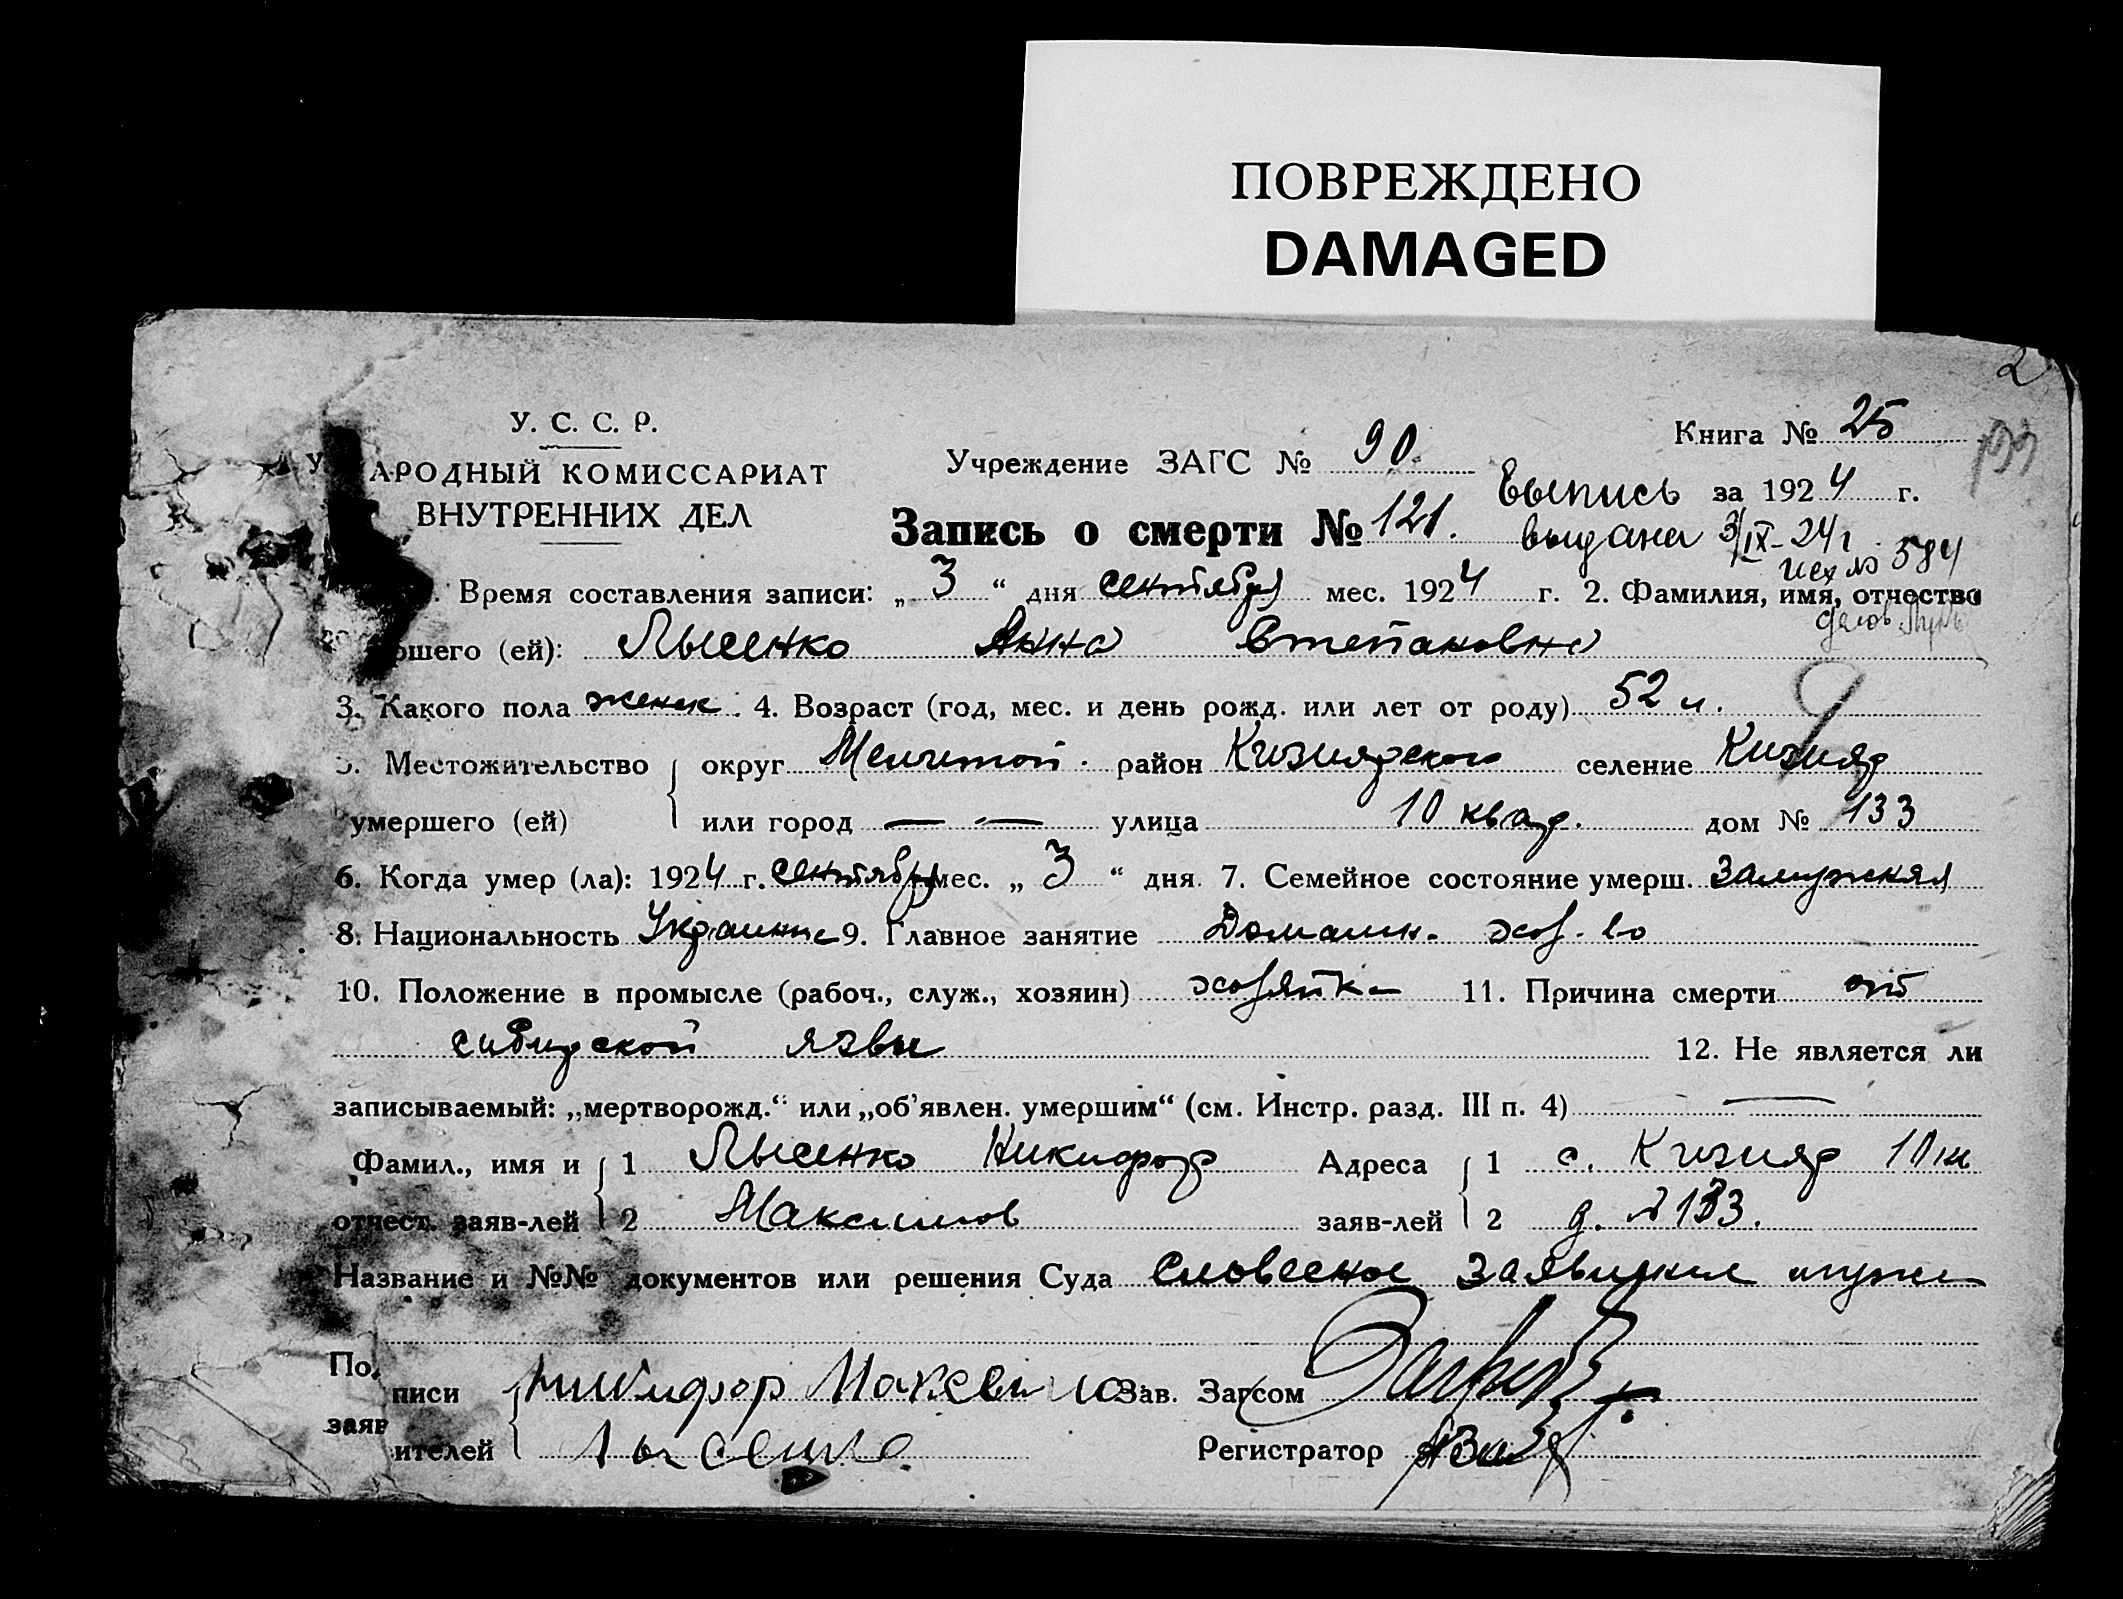 ПОВРЕЖДЕНО
DAMAGED
2
У. С. С. Р.
АРОДНЫЙ КОМИССАРИАТ
ВНУТРЕННИХ ДЕЛ
Учреждение ЗАГС № 90
Книга № 25
Выпись за 1924 г.
Запись о смерти № 121. выдана 3/IX-24 г.
исх № 584
Время составления записи: „3“ дня сентября мес. 1924 г. 2. Фамилия, имя, отчество
ршего (ей): Лысенко Анна Степановна
3. Какого пола женск. 4. Возраст (год, мес. и день рожд. или лет от роду) 52 л.
5. Местожительство округ Мелитоп. район Кизиярского селение Кизияр
умершего (ей) или город — — улица 10 квар. дом № 133
6. Когда умер (ла): 1924 г. сентября мес. „3“ дня. 7. Семейное состояние умерш. замужняя
8. Национальность Украинка 9. Главное занятие Домашн. хоз-во
10. Положение в промысле (рабоч., служ., хозяин) хозяйка 11. Причина смерти от
сибирской язвы 12. Не является ли
записываемый: „мертворожд.“ или „об’явлен. умершим“ (см. Инстр. разд. III п. 4) —
Фамил., имя и 1 Лысенко Никифор Адреса 1 с. Кизияр 10 кв
отчест. заяв-лей 2 Максимов заяв-лей 2 д. № 133.
Название и №№ документов или решения Суда Словесное заявление мужа
По. писи Никифор Максимо Зав. Загсом
заяв ителей Лысенко Регистратор